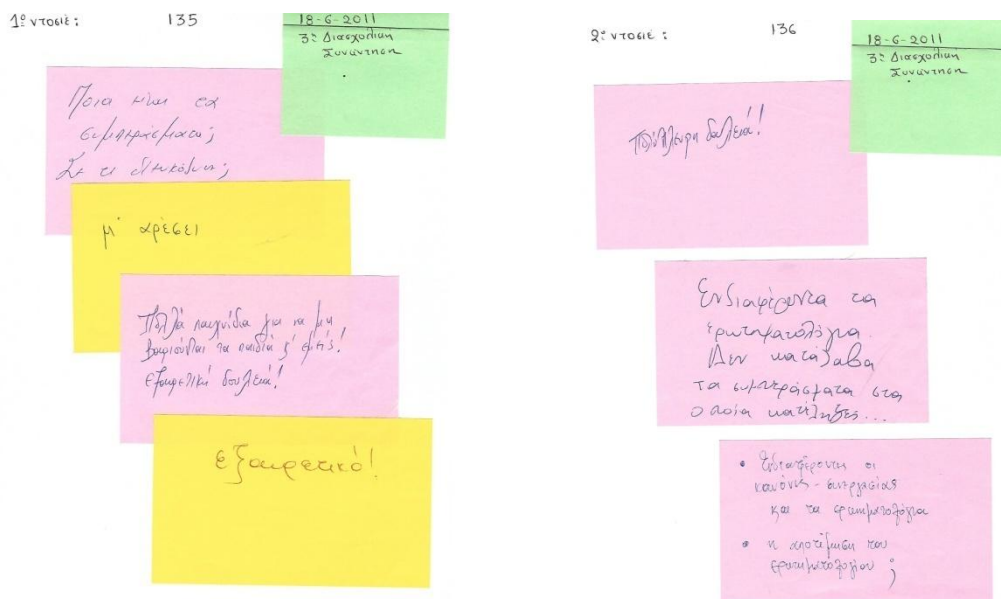 1ο ντοσιέ :
135
18-6-2011
3η Διασχολική
Συνάντηση
Ποια είναι τα
συμπεράσματα;
Σε τι δυσκόλεψε;
μ' αρέσει
Πολλά παιχνίδια για να μη
βαριούνται τα παιδιά κ' εμείς!
Εξαιρετική δουλειά!
εξαιρετικό!
2ο ντοσιέ :
136
18-6-2011
3η Διασχολική
Συνάντηση
Πολύπλευρη δουλειά!
Ενδιαφέροντα τα
ερωτηματολόγια.
Δεν κατάλαβα
τα συμπεράσματα στα
οποία κατέληξες...
• Ενδιαφέροντες οι
κανόνες - συνεργασίας
και τα ερωτηματολόγια
• η αποτίμηση του
ερωτηματολογίου ;